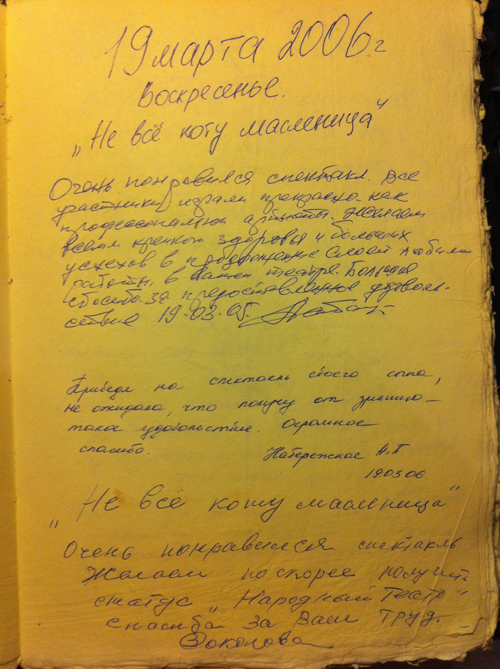 19 марта 2006 г
Воскресенье.
„Не всё коту масленица"
Очень понравился спектакл. Все
участники играли прекрасно как
профессоналы артисты. Желаем
всем крепкого здоровья и больших
успехов в и любими
работы, в вашем театре. Большое
спасибо за предоставленное удоволь-
ствие 19.03.05.
Привела на спектакль своего сына,
не ожидала, что получу от зрелища
такое удовольствие. Огромное
спасибо.
Набережная Н.П
190306
„Не всё коту масленица"
Очень понравился спектакль
Желаем поскорее получить
статус „Народный Театр"
Спасиба за Ваш труд.
Соколова